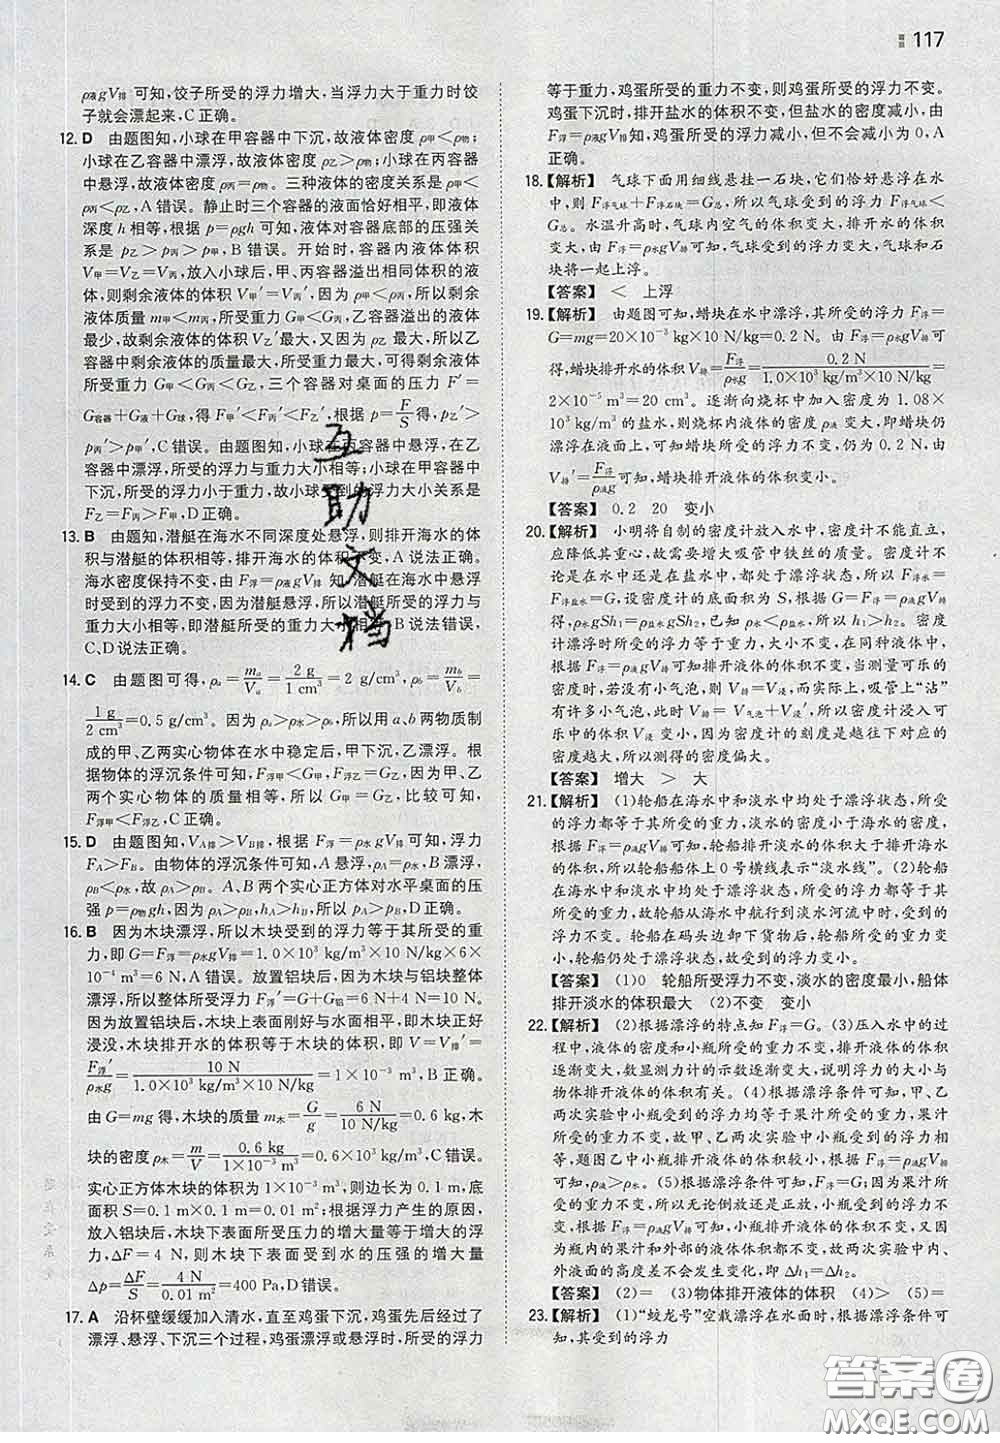 117
ρ液gV排 可知，饺子所受的浮力增大，当浮力大于重力时饺
子就会漂起来，C正确。
12. D 由题图知，小球在甲容器中下沉，故液体密度 ρ甲<ρ物；
小球在乙容器中漂浮，故液体密度 ρ乙>ρ物；小球在丙容器
中悬浮，故液体密度 ρ丙=ρ物。三种液体的密度关系是 ρ甲<
ρ丙<ρ乙，A错误。静止时三个容器的液面恰好相平，即液体
深度 h 相等，根据 p=ρgh 可知，液体对容器底部的压强关
系是 p乙>p丙>p甲，B错误。开始时，容器内液体体积
V甲=V乙=V丙，放入小球后，甲、丙容器溢出相同体积的液
体，则剩余液体的体积 V甲′=V丙′，因为 ρ甲<ρ丙，所以剩余
液体质量 m甲<m丙，所受重力 G甲<G丙，乙容器溢出的液体
最少，故剩余液体的体积 V乙′最大，又因为 ρ乙 最大，所以乙
容器中剩余液体的质量最大，所受重力最大，可得剩余液体
所受重力 G甲<G丙<G乙，三个容器对桌面的压力 F′=
G容器+G液+G球，得 F甲′<F丙′<F乙′，根据 p=F/S得，p乙′>
p丙′>p甲′，C错误。由题图知，小球在丙容器中悬浮，在乙
容器中漂浮，所受的浮力与重力大小相等；小球在甲容器中
下沉，所受的浮力小于重力，故小球受到的浮力大小关系是
F乙=F丙>F甲，D正确。
13. B 由题知，潜艇在海水不同深度处悬浮，则排开海水的体
积与潜艇的体积相等，排开海水的体积不变，A说法正确。
海水密度保持不变，由 F浮=ρ液gV排 知，潜艇在海水中悬浮
时受到的浮力不变，因为潜艇悬浮，所以潜艇所受的浮力与
重力大小相等，即潜艇所受的重力大小相等，B说法错误，
C、D说法正确。
14. C 由题图可得，ρa=ma/Va=2 g/1 cm³=2 g/cm³，ρb=mb/Vb=
1 g/2 cm³=0.5 g/cm³。因为 ρa>ρ水>ρb，所以用 a、b 两物质制
成的甲、乙两实心物体在水中稳定后，甲下沉，乙漂浮。根
据物体的浮沉条件可知，F浮甲<G甲，F浮乙=G乙。因为甲、乙
两个实心物体的质量相等，所以 G甲=G乙，比较可知，
F浮甲<F浮乙，C正确。
15. D 由题图知，VA排>VB排，根据 F浮=ρ水gV排 可知，浮力
FA>FB。由物体的浮沉条件可知，A悬浮，ρA=ρ水，B漂浮，
ρB<ρ水，故 ρA>ρB。A、B两个实心正方体对水平桌面的压
强 p=ρgh，因为 ρA>ρB，hA>hB，所以 pA>pB，D正确。
16. B 因为木块漂浮，所以木块受到的浮力等于其所受的重
力，即 G=F浮=ρ水gV排=1.0×10³ kg/m³×10 N/kg×6×
10⁻⁴ m³=6 N，A错误。放置铝块后，木块与铝块整体
漂浮，所以整体所受浮力 F浮′=G+G铝=6 N+4 N=10 N。
因为放置铝块后，木块上表面刚好与水面相平，即木块正好
浸没，木块排开水的体积等于木块的体积，即 V=V排′=
F浮′/ρ水g=10 N/1.0×10³ kg/m³×10 N/kg=1×10⁻³ m³，B正确。
由 G=mg 得，木块的质量 m木=G/g=6 N/10 N/kg=0.6 kg，木
块的密度 ρ木=m/V=0.6 kg/1×10⁻³ m³=0.6×10³ kg/m³，C错误。
实心正方体木块的体积为 1×10⁻³ m³，则边长为 0.1 m，底
面积 S=0.1 m×0.1 m=0.01 m²。根据浮力产生的原因，
放入铝块后，木块下表面所受压力的增大量等于增大的浮
力，ΔF=4 N，则木块下表面受到水的压强的增大量
Δp=ΔF/S=4 N/0.01 m²=400 Pa，D错误。
17. A 沿杯壁缓缓加入清水，直至鸡蛋下沉，鸡蛋先后经过了
漂浮、悬浮、下沉三个过程，鸡蛋漂浮或悬浮时，所受的浮力
等于重力，鸡蛋所受的重力不变，则鸡蛋所受的浮力不变。
鸡蛋下沉时，排开盐水的体积不变，但盐水的密度减小，由
F浮=ρ液gV排 知，鸡蛋所受的浮力减小，但不会减小为 0，A
正确。
18.【解析】 气球下面用细线悬挂一石块，它们恰好悬浮在水
中，则 F浮气球+F浮石块=G总，所以气球受到的浮力 F浮气球<
G总。水温升高时，气球内空气的体积变大，排开水的体积
变大，由 F浮=ρ水gV排 可知，气球受到的浮力变大，气球和石
块将一起上浮。
【答案】 < 上浮
19.【解析】 由题图可知，蜡块在水中漂浮，其所受的浮力 F浮=
G=mg=20×10⁻³ kg×10 N/kg=0.2 N。由 F浮=ρ水gV排 可
得，蜡块排开水的体积 V排=F浮/ρ水g=0.2 N/1.0×10³ kg/m³×10 N/kg=
2×10⁻⁵ m³=20 cm³。逐渐向烧杯中加入密度为 1.08×
10³ kg/m³ 的盐水，则烧杯内液体的密度 ρ液 变大，即蜡块仍
漂浮在液面上，可知蜡块所受的浮力不变，仍为 0.2 N，由
V排′=F浮/ρ液g可知，蜡块排开液体的体积变小。
【答案】 0.2 20 变小
20.【解析】 小明将自制的密度计放入水中，密度计不能直立，
应降低其重心，故需要增大吸管中铁丝的质量。密度计不
论是在水中还是在盐水中，都处于漂浮状态，所以 F浮水=
F浮盐水=G，设密度计的底面积为 S，根据阿基米德原理可
得，ρ水gSh₁=ρ盐水gSh₂，已知 ρ水<ρ盐水，所以 h₁>h₂。密度
计漂浮时所受的浮力等于重力，大小不变，在同种液体中，
根据 F浮=ρ液gV排 可知排开液体的体积不变，当测量可乐的
密度时，若没有小气泡，则 V排=V浸，而实际上，吸管上“沾”
有许多小气泡，此时 V排=V气泡+V浸′，所以密度计浸入可
乐中的体积 V浸 变小，因为密度计的刻度是越往下对应的
密度越大，所以测得的密度偏大。
【答案】 增大 > 大
21.【解析】 (1)轮船在海水中和淡水中均处于漂浮状态，所受
的浮力都等于其所受的重力，淡水的密度小于海水的密度，
根据 F浮=ρ液gV排 可知，船体排开淡水的体积大于排开海水
的体积，所以轮船船体上 0 号横线表示“淡水线”。(2)轮船
在海水中和淡水中均处于漂浮状态，所受的浮力都等于其
所受的重力，故轮船从海水中航行到淡水河流中时，受到的
浮力不变。轮船在码头边卸下货物后，轮船所受的重力变
小，轮船仍处于漂浮状态，故轮船受到的浮力变小。
【答案】 (1)0 轮船所受浮力不变，淡水的密度最小，船体
排开淡水的体积最大 (2)不变 变小
22.【解析】 (2)根据漂浮的特点知 F浮=G。(3)压入水中的过
程中，液体的密度和小瓶所受的重力不变，排开液体的体积
逐渐变大，数显测力计的示数逐渐变大，说明浮力的大小与
物体排开液体的体积有关。(4)根据漂浮条件可知，甲、乙
两次实验中小瓶受到的浮力均等于果汁所受的重力，果汁
所受的重力不变，故甲、乙两次实验中小瓶受到的浮力相
等，题图乙中小瓶排开液体的体积较小，根据 F浮=ρ液gV排
可知，ρ盐水>ρ水。(5)根据漂浮条件可知，F浮=G；因为果汁
所受的重力不变，所以无论倒放还是正放，小瓶受到的浮力
都不变，根据 F浮=ρ液gV排 可知，排开液体的体积不变，又因
为瓶内的果汁和外部的液体体积都不变，故两次实验中内、
外液面的高度差不会发生变化，即 Δh₁=Δh₂。
【答案】 (2)= (3)物体排开液体的体积 (4)> (5)=
23.【解析】 (1)“蛟龙号”空载漂浮在水面时，根据漂浮条件可
知，其受到的浮力
互助文档
答案圈
MXQE.COM